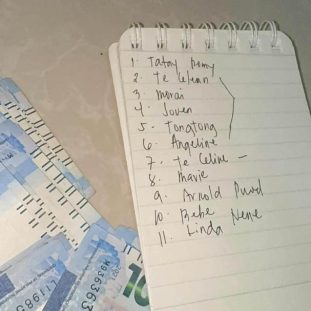 1. Tatay Romy
2. Te Weng
3. Morai
4. Joven
5. Tongtong
6. Angeline
7. Te Celine -
8. Mavie
9. Arnold
10. Bebe Nene
11. Linda